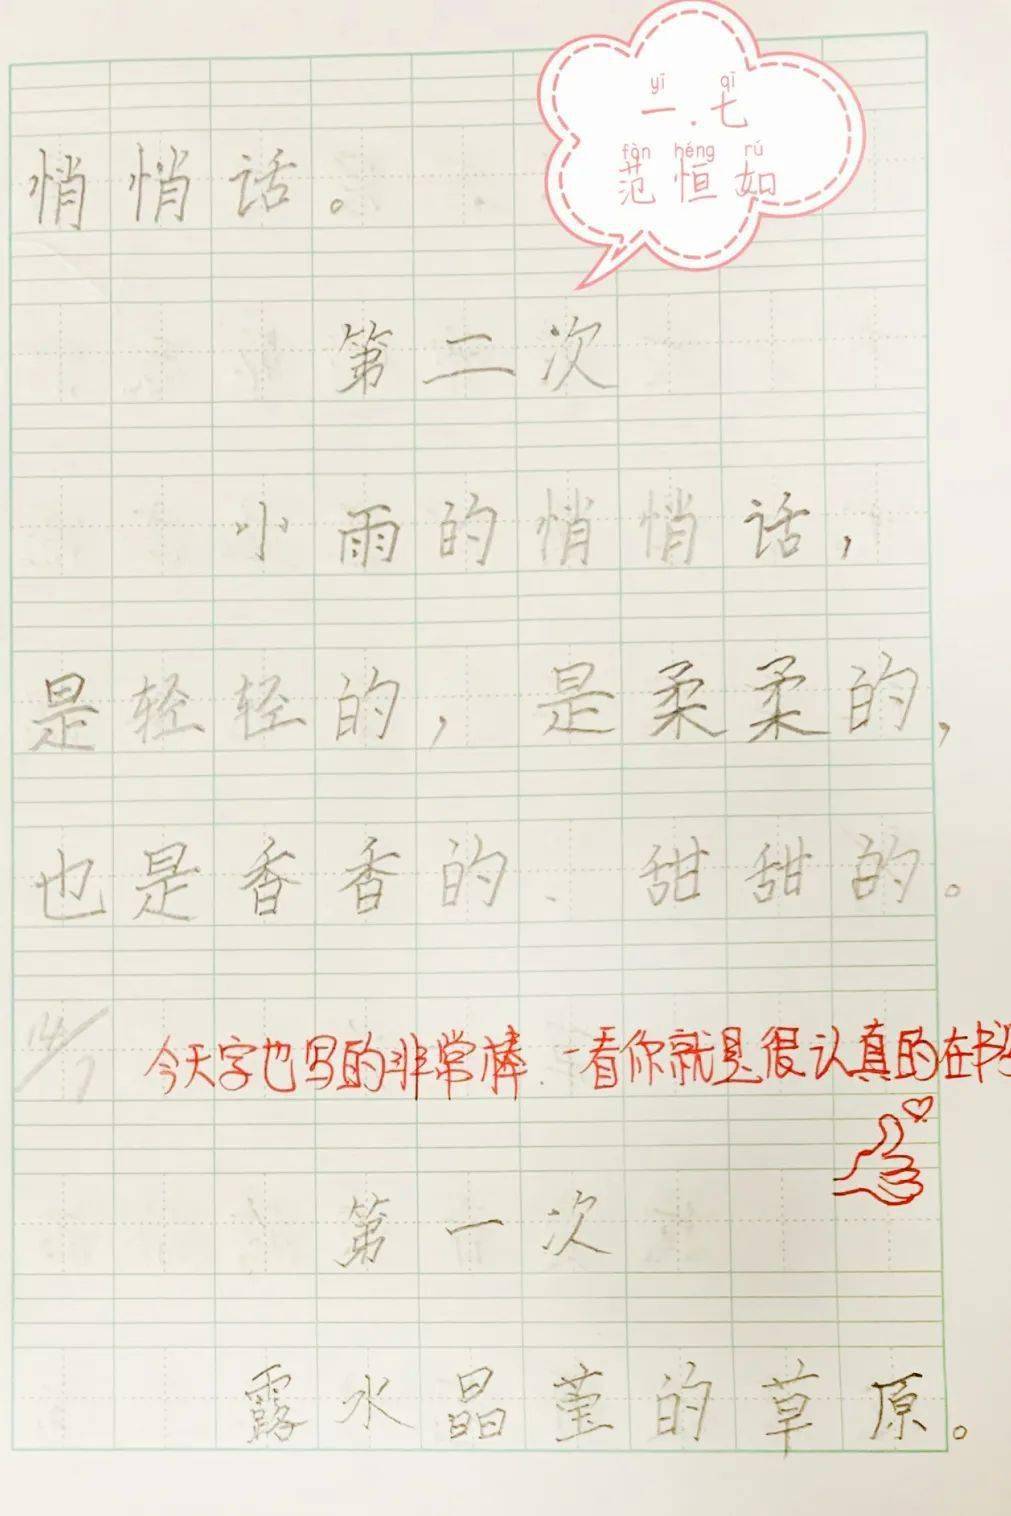 yī qī
一.七
fàn héng rú
范恒如
悄悄话。
第二次
小雨的悄悄话，
是轻轻的，是柔柔的，
也是香香的、甜甜的。
14/7
今天字也写的非常棒、一看你就是很认真的在书
第一次
露水晶莹的草原。